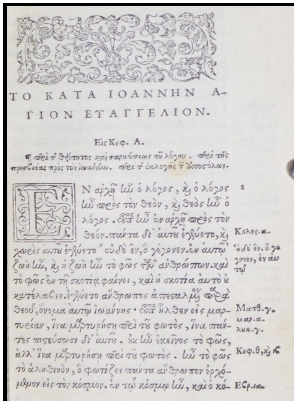 ΤΟ ΚΑΤΑ ΙΩΑΝΝΗΝ Α-
ΓΙΟΝ ΕΥΑΓΓΕΛΙΟΝ.
Εἰς Κεφ. Α.
¶ περὶ τ θεότητος καὶ σαρκώσεως τοῦ λόγου. περὶ τῆς
περὶ τ ἐκλογῆς
ΕΝ ἀρχῇ ἦν ὁ λόγος, κ ὁ λόγος
ἦν πρὸς τὸν θεὸν, κ θεὸς ἦν ὁ
λόγος. οὗτος ἦν ἐν ἀρχῇ πρὸς τὸν
θεόν. πάντα δι' αὐτοῦ ἐγένετο, κ
χωρὶς αὐτοῦ ἐγένετο οὐδὲ ἓν, ὃ γέγονεν. ἐν αὐτῷ
ζωὴ ἦν, κ ἡ ζωὴ ἦν τὸ φῶς τῶν ἀνθρώπων. καὶ
τὸ φῶς ἐν τῇ σκοτίᾳ φαίνει, καὶ ἡ σκοτία αὐτὸ οὐ
κατέλαβεν. ἐγένετο ἄνθρωπος ἀπεσταλμένος παρὰ
θεοῦ, ὄνομα αὐτῷ ἰωάννης· οὗτος ἦλθεν εἰς μαρ-
τυρίαν, ἵνα μαρτυρήσῃ περὶ τοῦ φωτὸς, ἵνα πάν-
τες πιστεύσωσι δι' αὐτοῦ. οὐκ ἦν ἐκεῖνος τὸ φῶς,
ἀλλ' ἵνα μαρτυρήσῃ περὶ τοῦ φωτός. ἦν τὸ φῶς
τὸ ἀληθινὸν, ὃ φωτίζει πάντα ἄνθρωπον ἐρχό-
μενον εἰς τὸν κόσμον. ἐν τῷ κόσμῳ ἦν, καὶ ὁ κό-
1
Κολοσ. α.
οὐδὲ ἓν. ὃ γέ
γονεν, ἐν αὐ
τῷ
Ματθ. γ.
μαρ. α.
λυκ. γ.
Κεφ. θ,
Εβρ. ια.